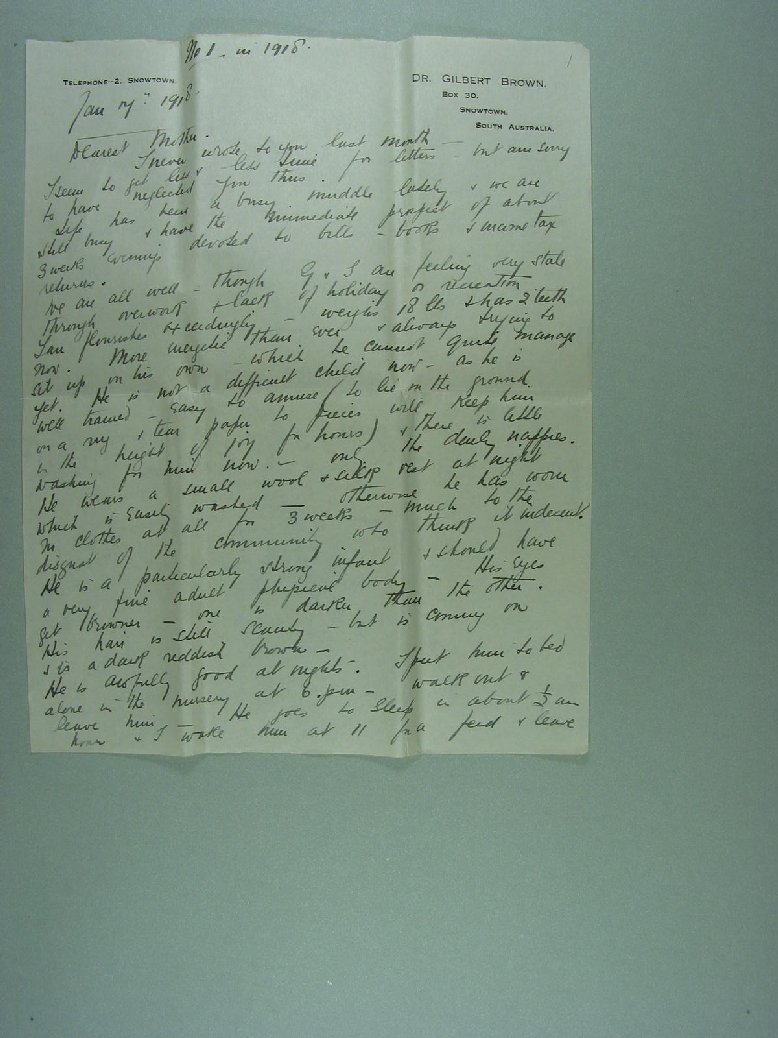 No 1. in 1918.
1
TELEPHONE-2, SNOWTOWN.
DR. GILBERT BROWN.
BOX 30.
SNOWTOWN.
SOUTH AUSTRALIA.
Jan 1918.
Dearest Mother.
I never wrote to you last month
I seem to get less & less time for letters - but am sorry
to have neglected you thus.
Life has been a busy muddle lately & we are
still busy & have the immediate prospect of about
3 weeks evenings devoted to bills - books & income tax
returns.
We are all well - though G & I are feeling very stale
through overwork & lack of holiday or recreation
Ian flourishes exceedingly - weighs 18 lbs & has 2 teeth
now. More energetic than ever & always trying to
sit up on his own - which he cannot quite manage
yet. He is not a difficult child now - as he is
well trained - easy to amuse (to lie on the ground
on a rug & tear paper to pieces will keep him
in the height of joy for hours) & there is little
washing for him now. - only the daily nappies.
He wears a small wool & silk vest at night
which is easily washed - otherwise he has worn
no clothes at all for 3 weeks - much to the
disgust of the community who think it indecent.
He is a particularly strong infant & should have
a very fine adult physical body - His eyes
get browner - one is darker than the other.
His hair is still scanty - but is coming on
& is a dark reddish brown -
He is awfully good at nights - I put him to bed
alone in the nursery at 6. pm - walk out &
leave him - He goes to sleep in about ½ an
hour & I wake him at 11 for a feed & leave